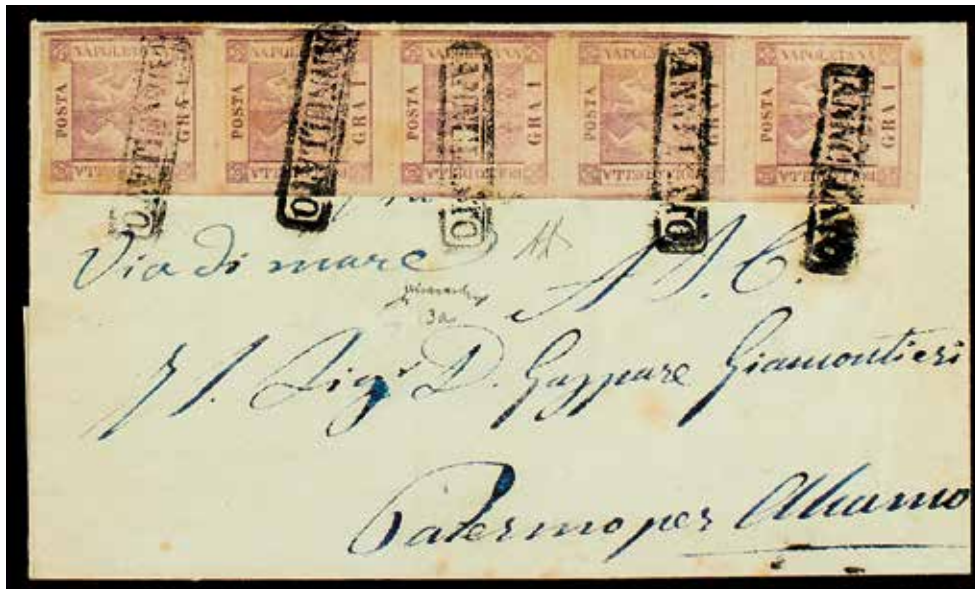 POSTA NAPOLETANA GRA 1 BOLLO DELLA
POSTA NAPOLETANA GRA 1 BOLLO DELLA
POSTA NAPOLETANA GRA 1 BOLLO DELLA
POSTA NAPOLETANA GRA 1 BOLLO DELLA
POSTA NAPOLETANA GRA 1 BOLLO DELLA
ANNULLATO
ANNULLATO
ANNULLATO
ANNULLATO
ANNULLATO
Via di mare
A S. C.
3a
Sigr D. Gaspare Giamontieri
Palermo per Alcamo